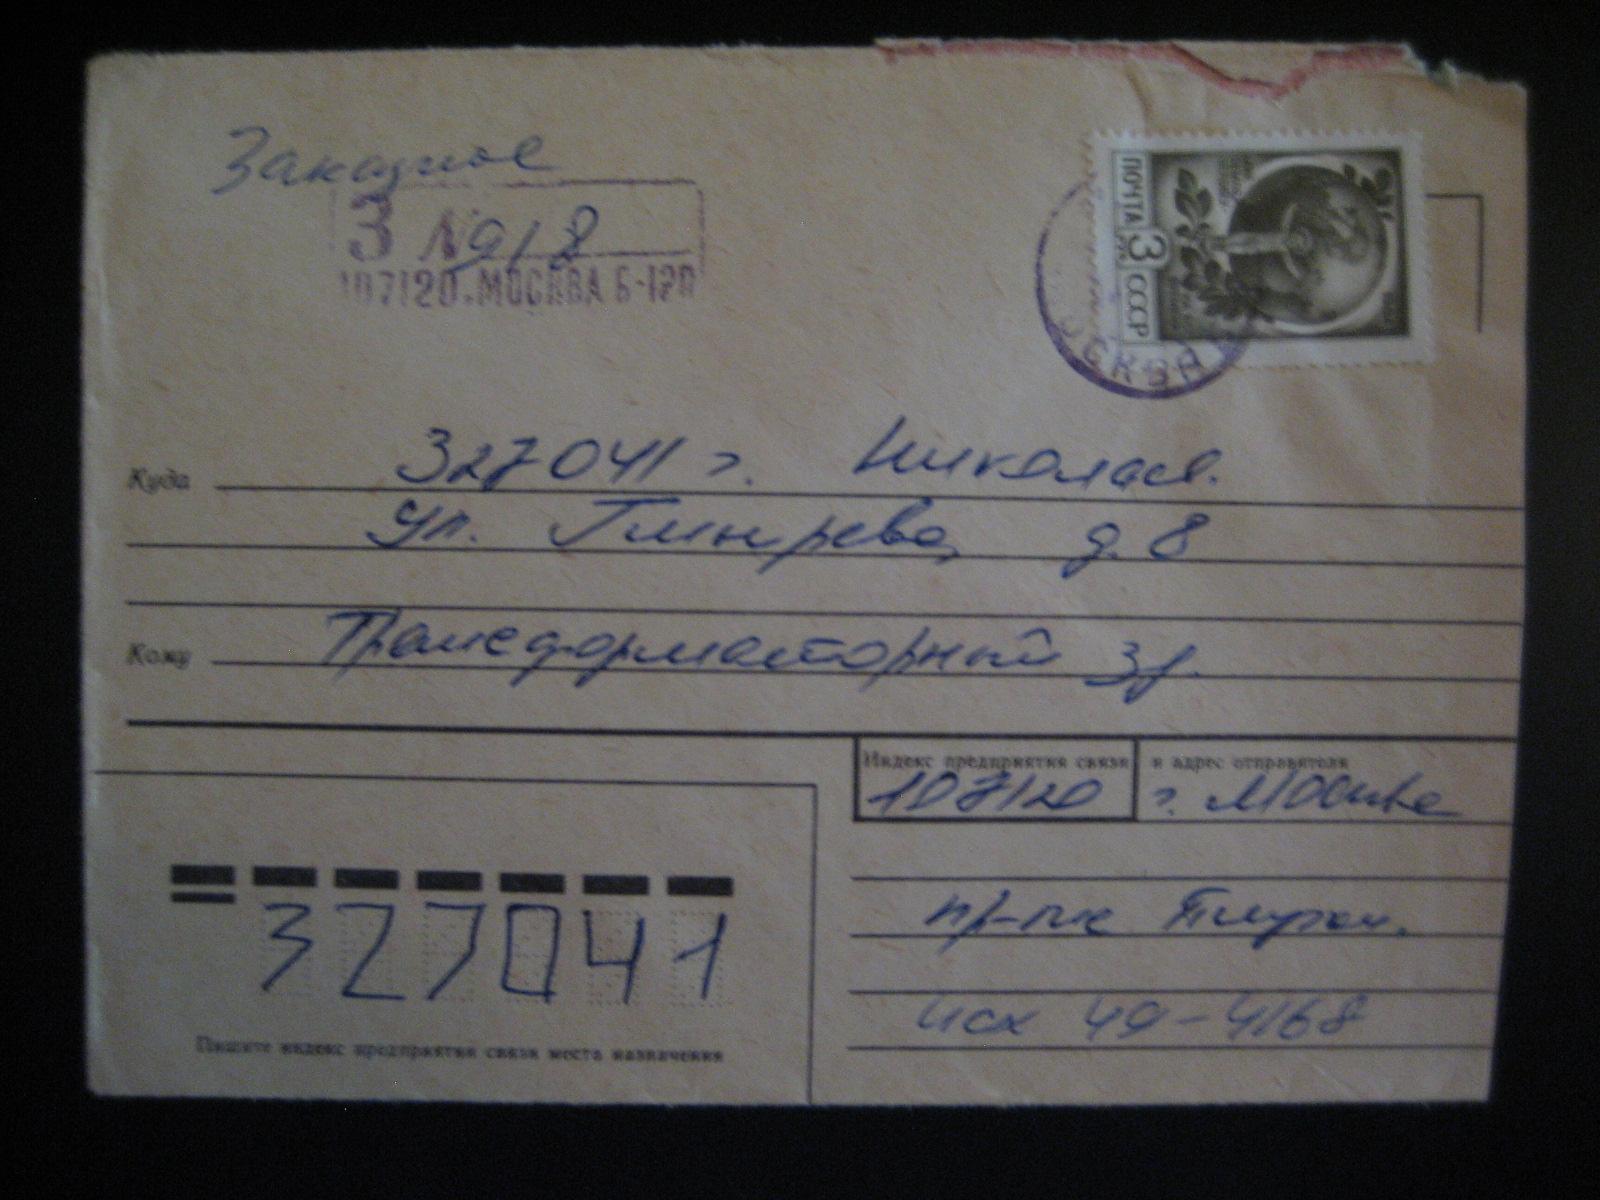 Заказное
З № 918
107120 МОСКВА Б-120
ПОЧТА 3 РУБ СССР
МОСКВА
Куда 327041 г. Николаев.
ул. д. 8
Кому Трансформаторный з-д.
Индекс предприятия связи и адрес отправителя
107120 г. Москва
пр-тие
исх 49-4168
327041
Пишите индекс предприятия связи места назначения